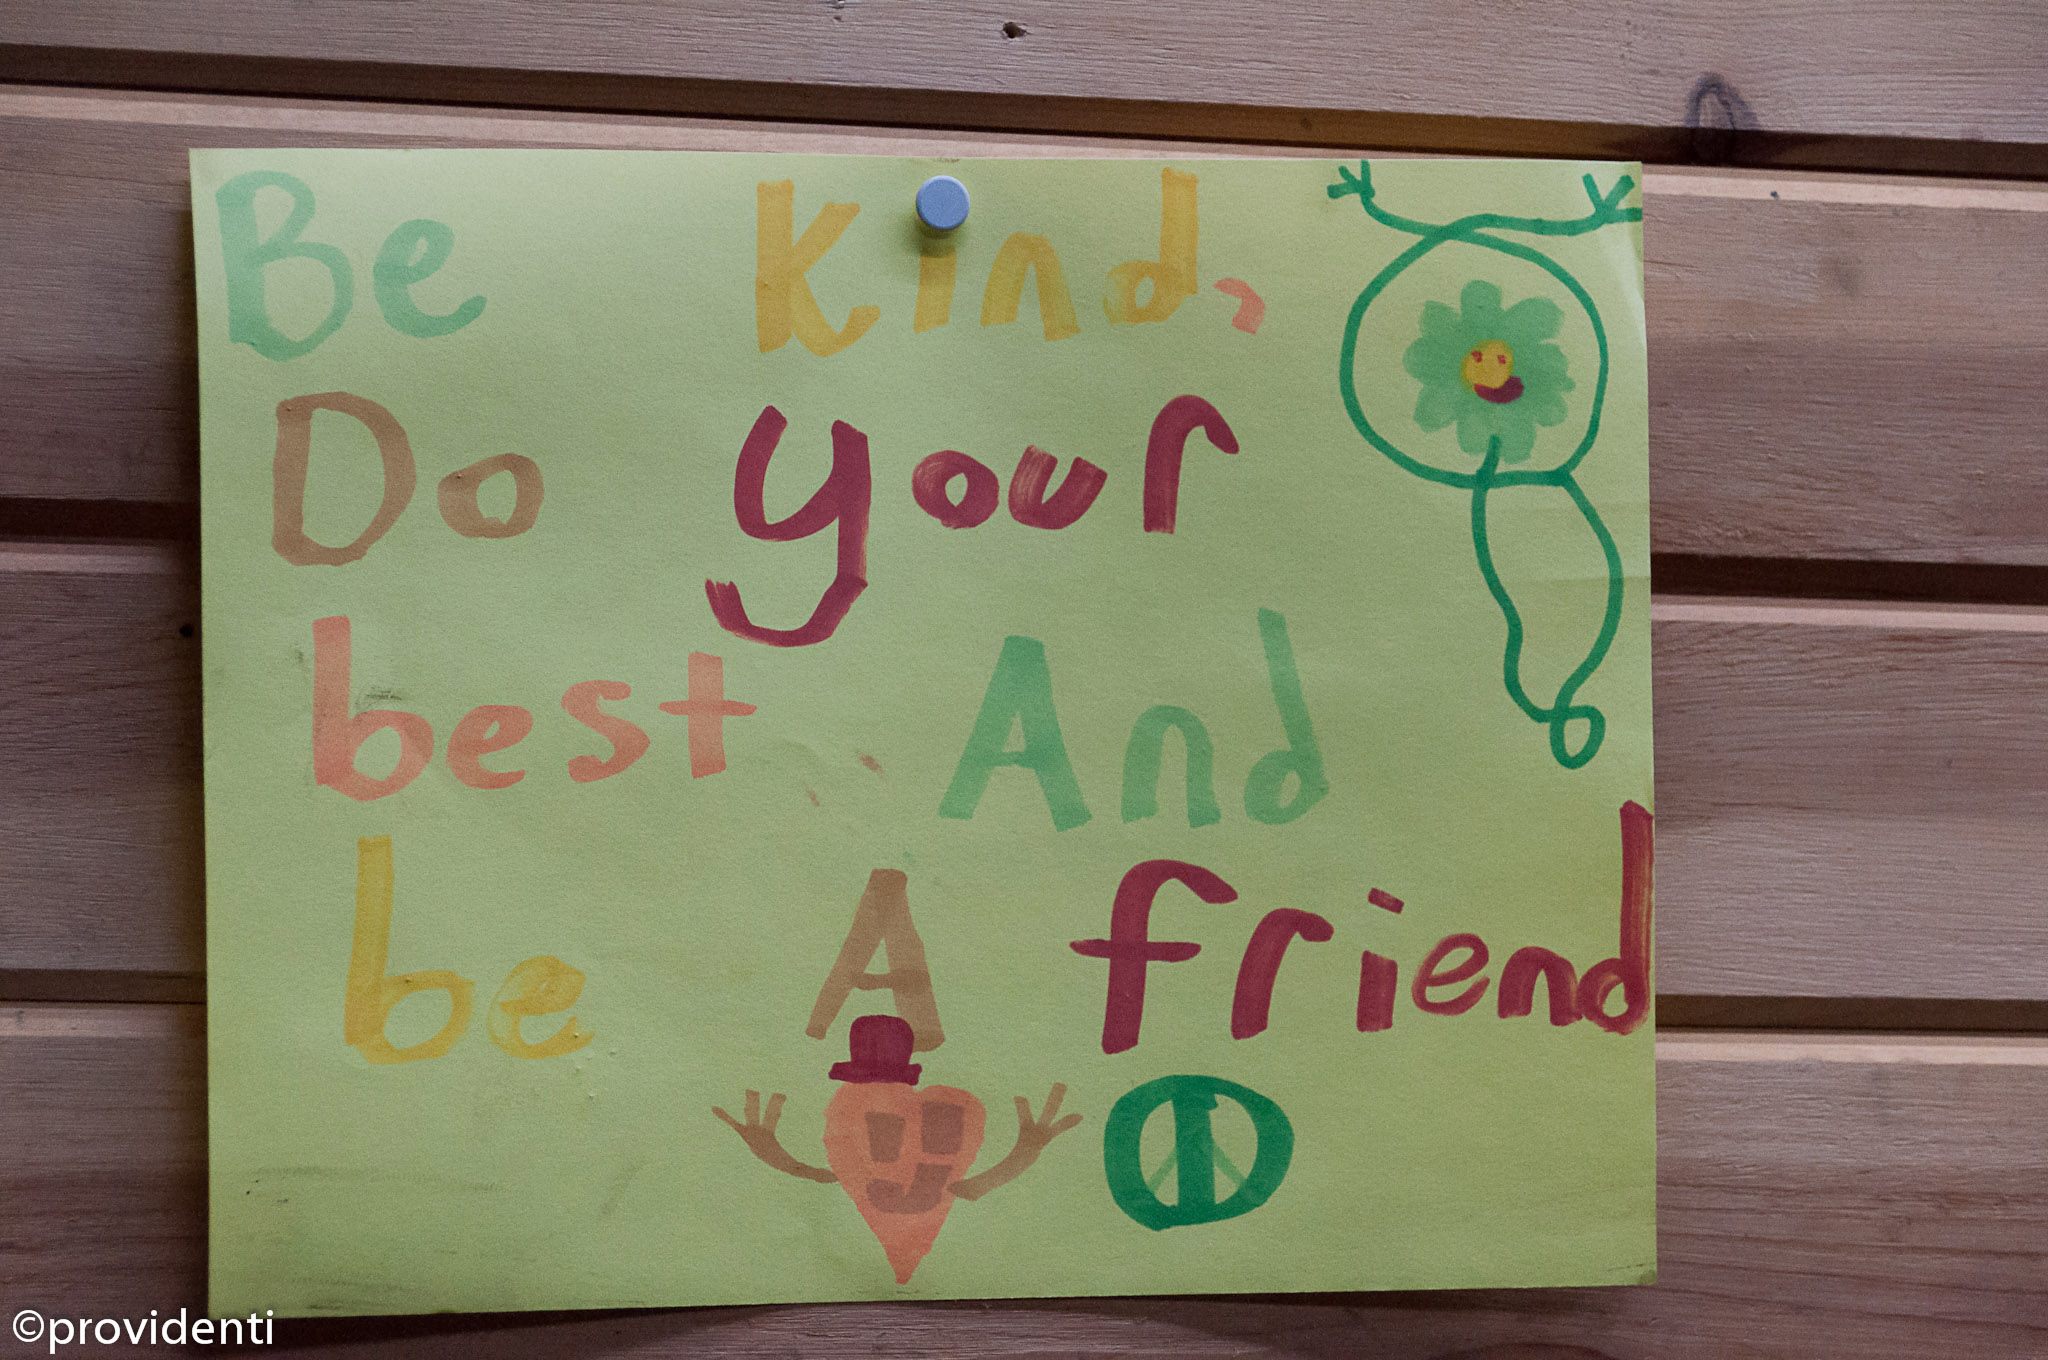 Be Kind,
Do your
best And
be A friend
©providenti